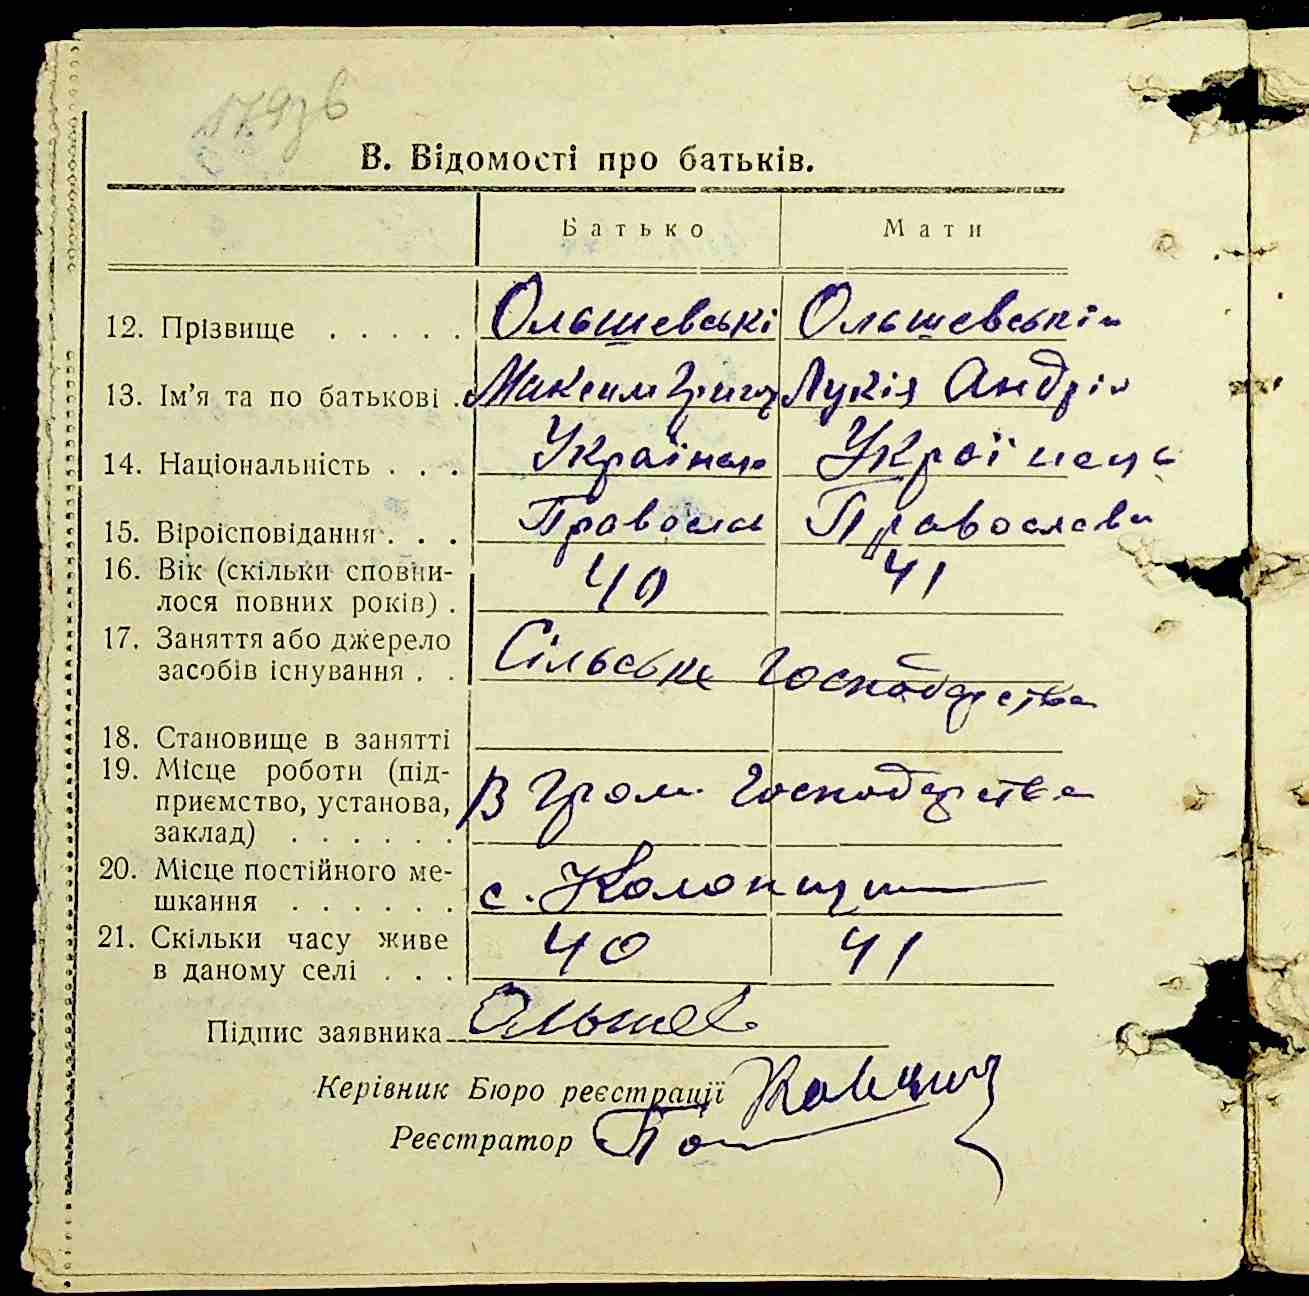 В. Відомості про батьків.
Батько Мати
12. Прізвище . . . . . Ольшевські Ольшевські
13. Ім'я та по батькові . Максим Григ Лукія Андрі
14. Національність . . . Україн Українець
15. Віроісповідання . . . Правосла Православ
16. Вік (скільки сповни- 40 41
лося повних років) .
17. Заняття або джерело Сільське господарства
засобів існування . .
18. Становище в занятті
19. Місце роботи (під- В Гром господарства
приємство, установа,
заклад) . . . . . .
20. Місце постійного ме- с.
шкання . . . . . .
21. Скільки часу живе 40 41
в даному селі . . .
Підпис заявника Ольшев
Керівник Бюро реєстрації
Реєстратор